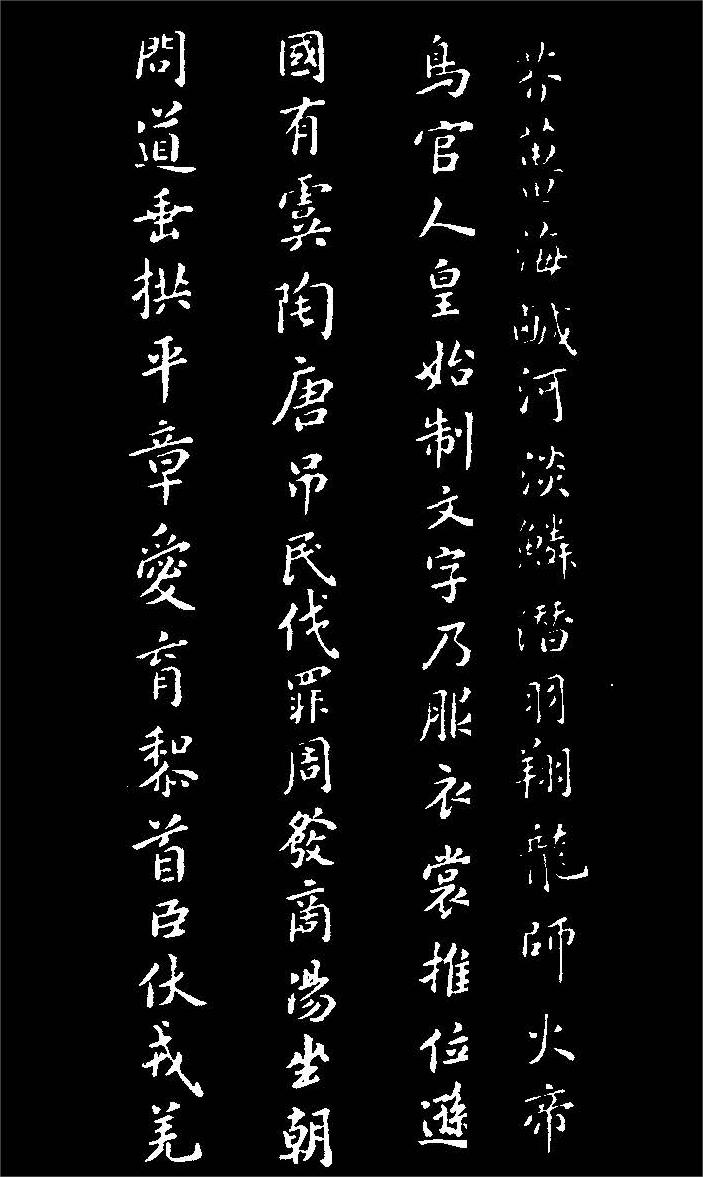 芥薑海鹹河淡鱗潛羽翔龍師火帝
鳥官人皇始制文字乃服衣裳推位遜
國有虞陶唐弔民伐罪周發商湯坐朝
問道垂拱平章愛育黎首臣伏戎羌